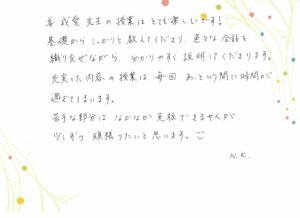 姜 成愛 先生の授業はとても楽しいです!
基礎からしっかりと教えてくださり、色々な会話を
織り交ぜながら、分かりやすく説明してくださります。
充実した内容の授業は、毎回 あっという間に時間が
過ぎてしまいます。
苦手な部分は なかなか克服できませんが、
少しずつ 頑張りたいと思います。☺
N.K.